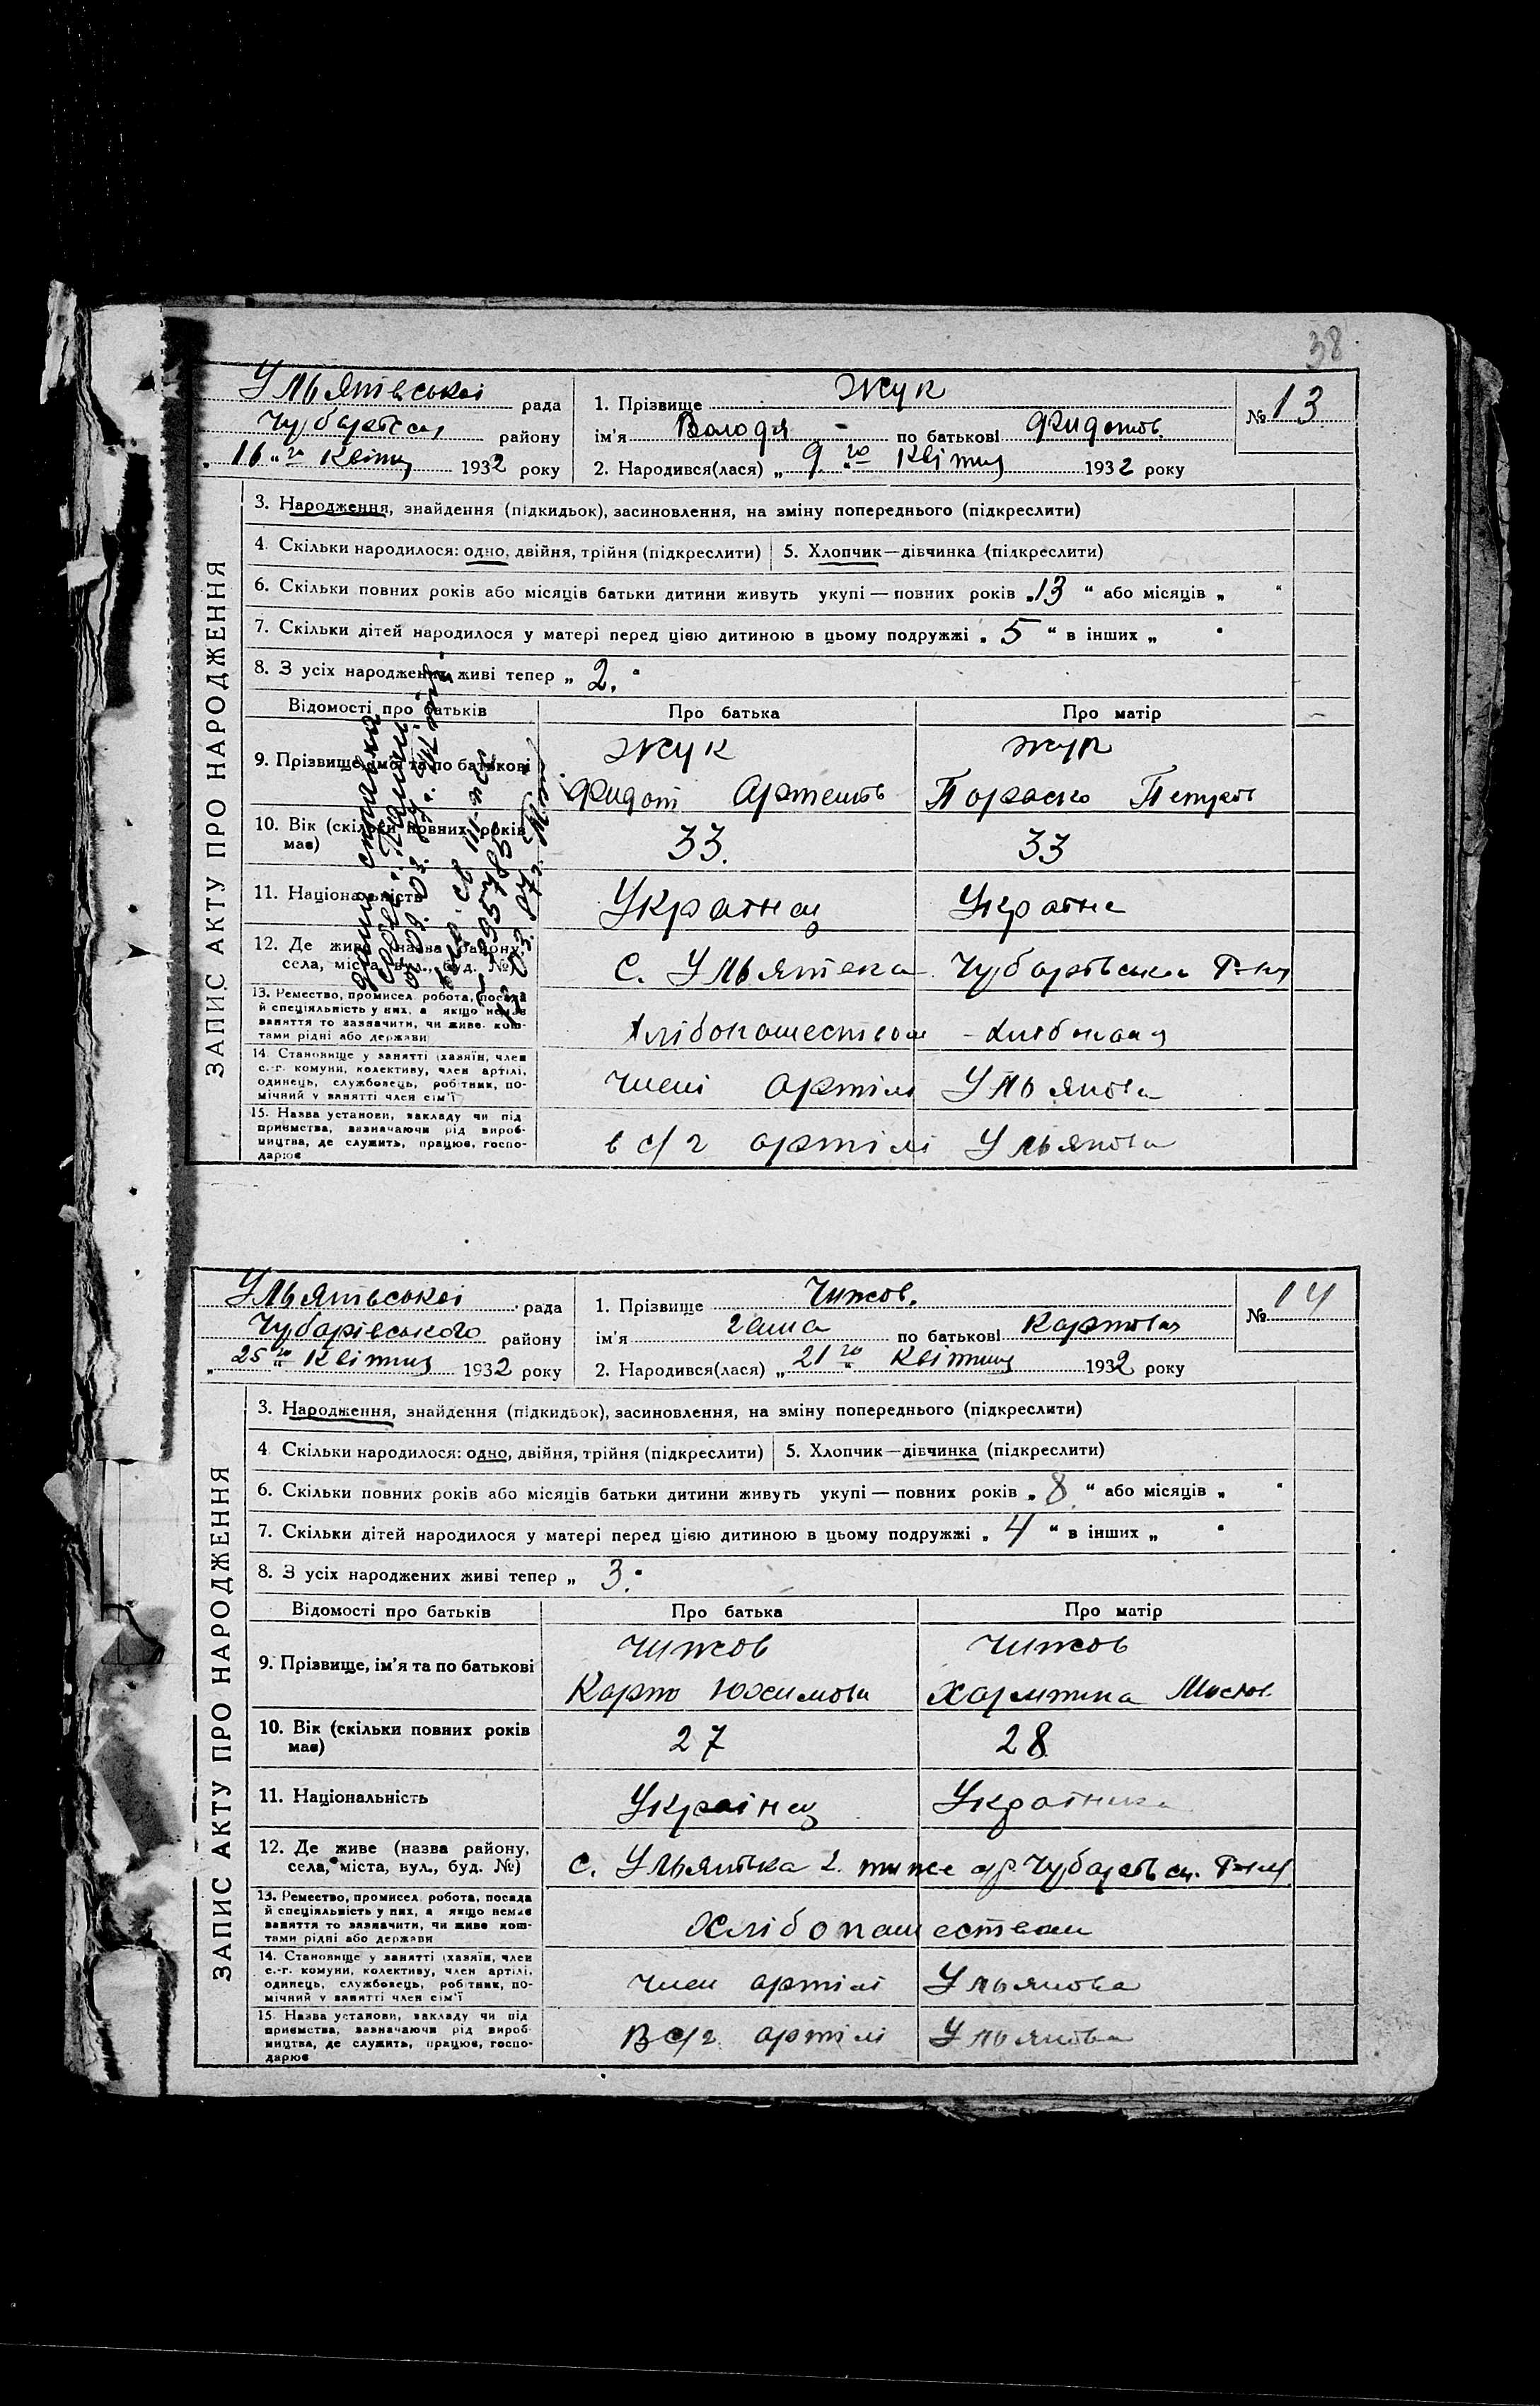 38
Ульянівської рада
району
16 го Квітня 1932 року
1. Прізвище Жук
ім'я Володя по батькові Фидотов.
2. Народився(лася) „ 9 го Квітня 1932 року
№ 13
ЗАПИС АКТУ ПРО НАРОДЖЕННЯ
3. Народження, знайдення (підкидьок), засиновлення, на зміну попереднього (підкреслити)
4. Скільки народилося: одно, двійня, трійня (підкреслити) 5. Хлопчик—дівчинка (підкреслити)
6. Скільки повних років або місяців батьки дитини живуть укупі — повних років „ 13 “ або місяців „ “
7. Скільки дітей народилося у матері перед цією дитиною в цьому подружжі „ 5 “ в інших „ “
8. З усіх народжених живі тепер „ 2. “
Відомості про батьків Про батька Про матір
9. Прізвище, ім'я та по батькові
Жук Жук
Фидот Петров
10. Вік (скільки повних років має) 33. 33
11. Національність
12. Де живе (назва району, села, міста, вул., буд. №)
с.
13. Ремество, промисел, робота, посада й спеціяльність у них, а якщо немає заняття то зазначити, чи живе коштами рідні або держави
14. Становище у занятті (хазяїн, член с.-г. комуни, колективу, член артілі, одинець, службовець, робітник, помічний у занятті член сім'ї
артілі Ульянова
15. Назва установи, закладу чи підприємства, зазначаючи рід виробництва, де служить, працює, господарює
в с/г артілі Ульянова
Ульянівської рада
Чубарівського району
„ 25 го Квітня 1932 року
1. Прізвище Чижов.
ім'я по батькові Карповая
2. Народився(лася) „ 21 го Квітня 1932 року
№ 14
ЗАПИС АКТУ ПРО НАРОДЖЕННЯ
3. Народження, знайдення (підкидьок), засиновлення, на зміну попереднього (підкреслити)
4. Скільки народилося: одно, двійня, трійня (підкреслити) 5. Хлопчик—дівчинка (підкреслити)
6. Скільки повних років або місяців батьки дитини живуть укупі — повних років „ 8 “ або місяців „ “
7. Скільки дітей народилося у матері перед цією дитиною в цьому подружжі „ 4 “ в інших „ “
8. З усіх народжених живі тепер „ 3. “
Відомості про батьків Про батька Про матір
9. Прізвище, ім'я та по батькові
Чижов Чижов
Карпо Юхимова
10. Вік (скільки повних років має) 27 28
11. Національність Українец
12. Де живе (назва району, села, міста, вул., буд. №)
с.
13. Ремество, промисел, робота, посада й спеціяльність у них, а якщо немає заняття то зазначити, чи живе коштами рідні або держави
Хлібопашеством
14. Становище у занятті (хазяїн, член с.-г. комуни, колективу, член артілі, одинець, службовець, робітник, помічний у занятті член сім'ї
член артілі Ульянова
15. Назва установи, закладу чи підприємства, зазначаючи рід виробництва, де служить, працює, господарює
в с/г артілі Ульянова